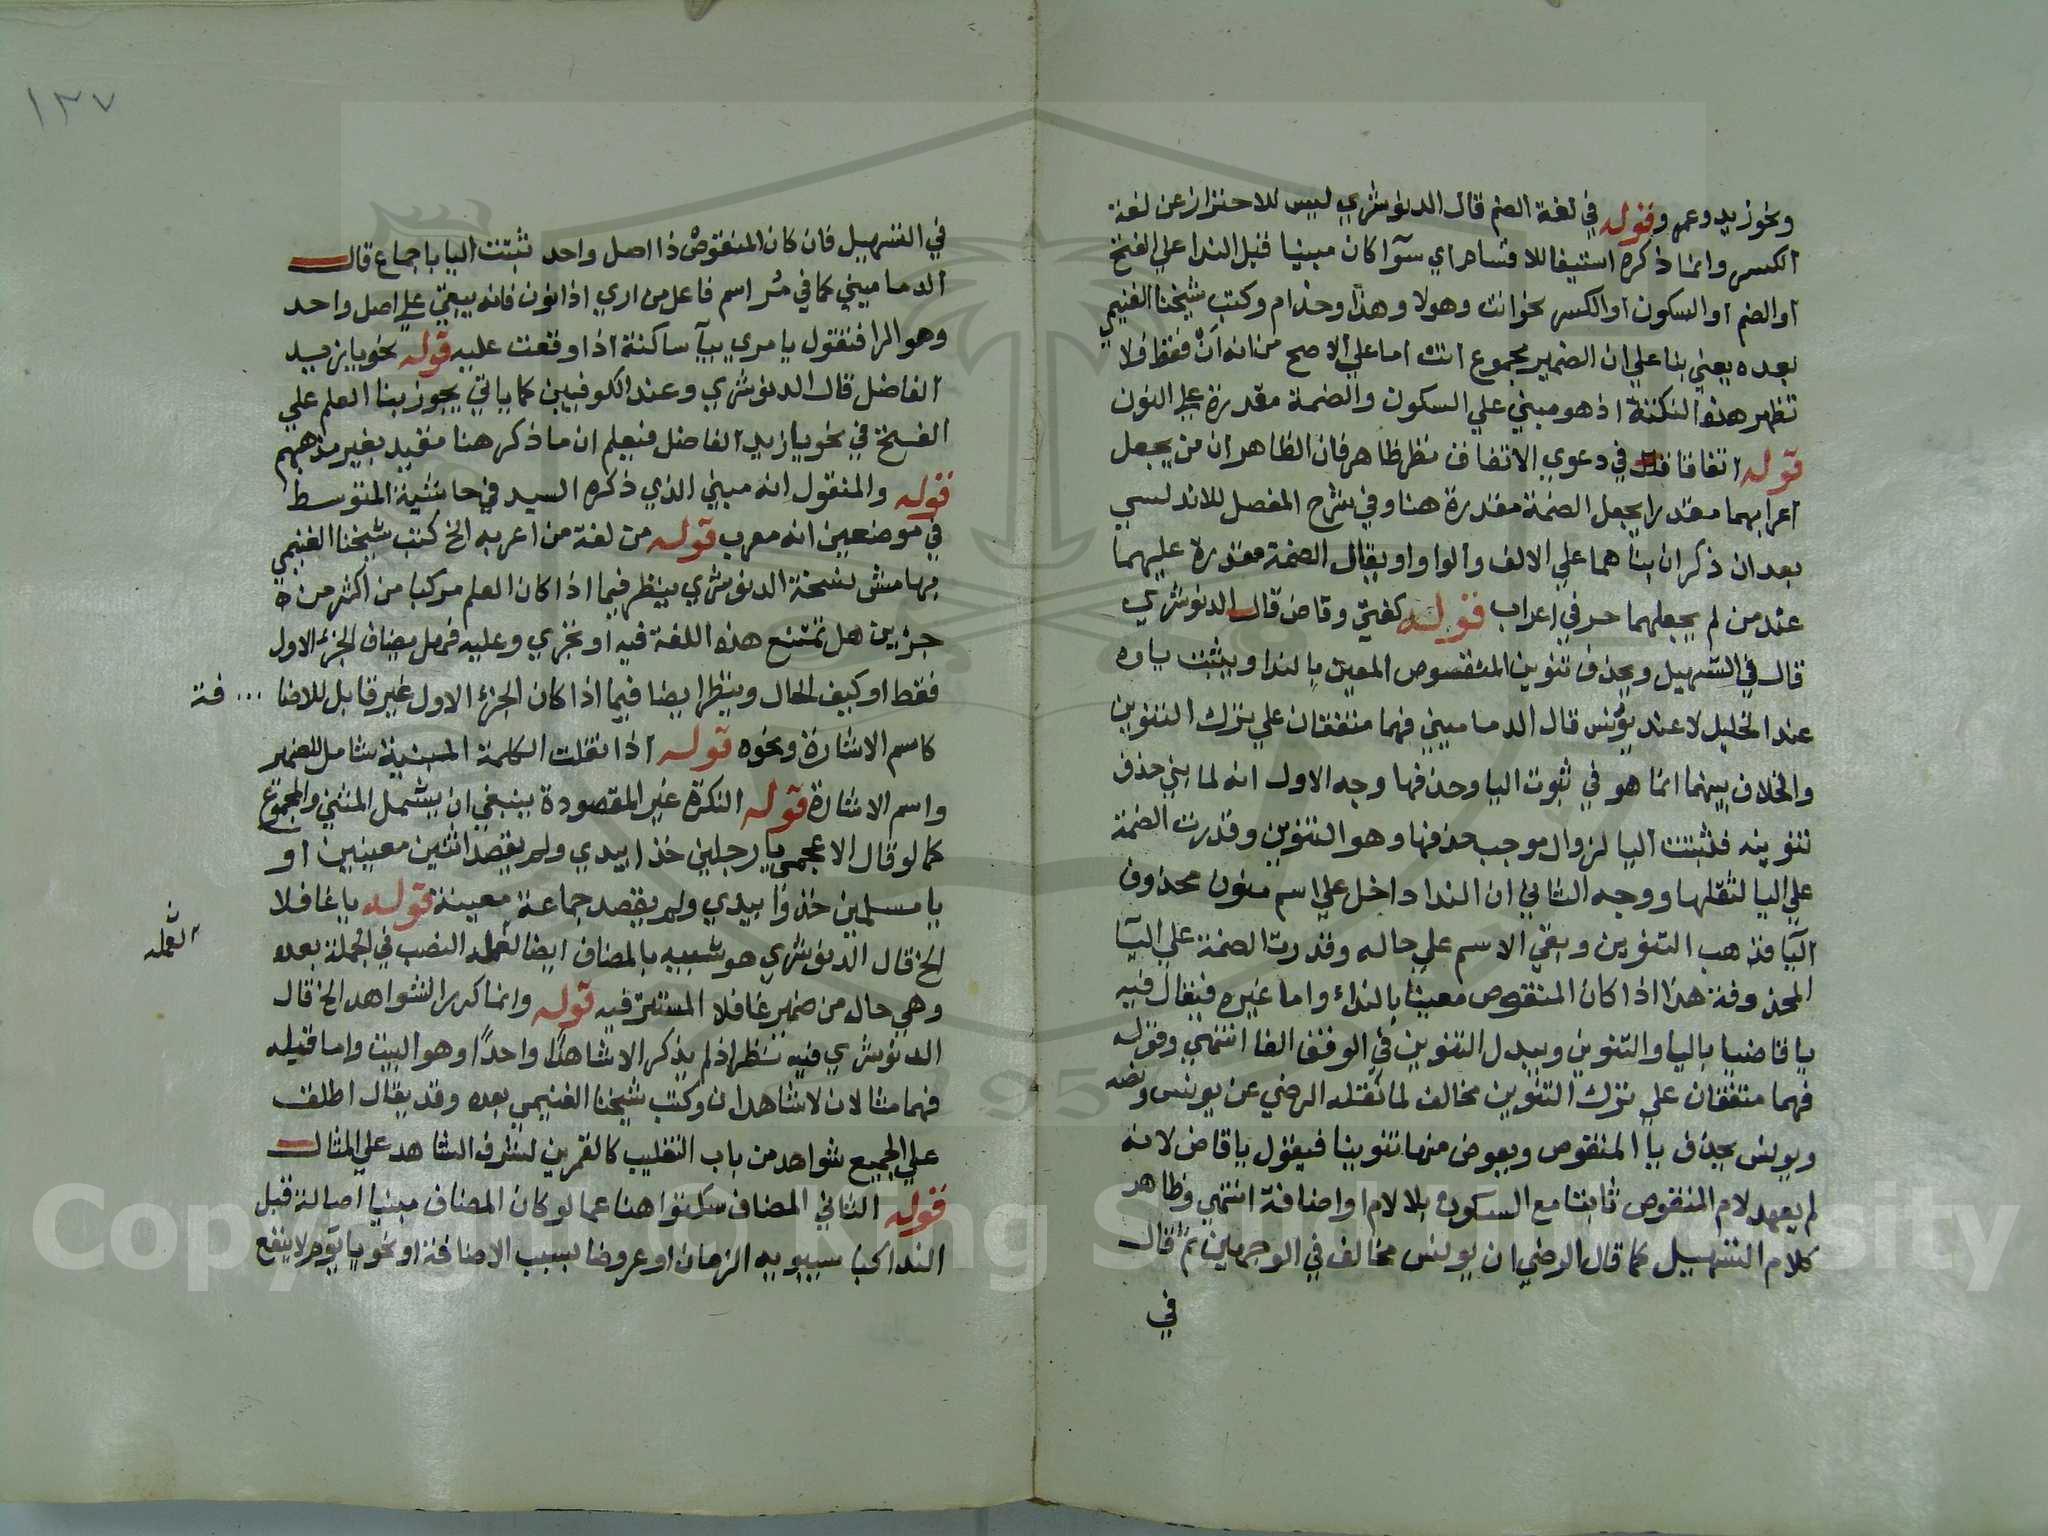 ونحو زيد وعمرو قوله في لغة الضم قال الدنوشري ليس للاحتراز عن لغة
الكسر وانما ذكره استيفا للاقسام اي سوآ كان مبنيا قبل الندا علي الفتح
او الضم او السكون او الكسر نحو انت وهولا وهذا وحذام وكتب شيخنا الغنيمي
بعده يعني بنا علي ان الضمير مجموع انت اما علي الاصح من انه ان فقط فلا
تظهر هذه النكتة اذ هو مبني علي السكون والضمة مقدرة علي النون
قوله اتفاقا في دعوي الاتفاق نظر ظاهر فان الظاهر ان من يجعل
اعرابهما مقدرا يجعل الضمة مقدرة هنا وفي شرح المفصل للاندلسي
بعد ان ذكر ان بنا هما علي الالف والواو او يقال الضمة مقدرة عليهما
عند من لم يجعلهما حرفي اعراب قوله كفتي وقاض قال الدنوشري
قال في التسهيل ويحذف تنوين المنقوص المعين بالندا ويثبت ياوه
عند الخليل لا عند يونس قال الدماميني فهما متفقان علي ترك التنوين
والخلاف بينهما انما هو في ثبوت اليا وحذفها وجه الاول انه لما بني حذف
تنوينه فثبتت اليا لزوال موجب حذفها وهو التنوين وقدرت الضمة
علي اليا لثقلها ووجه الثاني ان الندا داخل علي اسم منون محذوف
اليآ فذهب التنوين وبقي الاسم علي حاله وقدرت الضمة علي اليآ
المحذوفة هذا اذا كان المنقوص معينا بالنداء واما غيره فيقال فيه
يا قاضيا باليا والتنوين ويبدل التنوين في الوقف الفا انتهي وقوله
فهما متفقان علي ترك التنوين مخالف لما نقله الرضي عن يونس ونصه
ويونس يحذف يا المنقوص ويعوض منها تنوينا فيقول يا قاض لانه
لم يعهد لام المنقوص ثابتا مع السكون بلا لام او اضافة انتهي وظاهر
كلام التسهيل كما قال الرضي ان يونس مخالف في الوجهين ثم قال
في
١٣٧
في التسهيل فان كان المنقوص ذا اصل واحد ثبتت اليا باجماع قال
الدماميني كما في مر اسم فاعل من اري اذا نون فانه يبقي علي اصل واحد
وهو الرا فتقول يا مري بيآ ساكنة اذا وقفت عليه قوله نحو يا زيد
الفاضل قال الدنوشري وعند الكوفيين كما ياتي يجوز بنا العلم علي
الفتح في نحو يا زيد الفاضل فيعلم ان ما ذكر هنا مقيد بغير مذهبهم
قوله والمنقول انه مبني الذي ذكره السيد في حاشية المتوسط
في موضعين انه معرب قوله من لغة من اعربه الخ كتب شيخنا الغنيمي
بهامش نسخة الدنوشري ينظر فيما اذا كان العلم مركبا من اكثر من
جزءين هل تمتنع هذه اللغة فيه او تجزي وعليه فهل يضاف الجزء الاول
فقط او كيف الحال وينظر ايضا فيما اذا كان الجزء الاول غير قابل للاضا ... فة
كاسم الاشارة ونحوه قوله اذا نقلت الكلمة المبنية شامل للضمير
واسم الاشارة قوله النكرة غير المقصودة ينبغي ان يشمل المثني والمجموع
كما لو قال الاعجمي يا رجلين خذا بيدي ولم يقصد اثنين معينين او
يا مسلمين خذوا بيدي ولم يقصد جماعة معينة قوله يا غافلا
الخ قال الدنوشري هو شبيه بالمضاف ايضا لعمله النصب في الجملة بعده
لعمله
وهي حال من ضمير غافلا المستتر فيه قوله وانما كرر الشواهد الخ قال
الدنوشري فيه نظر اذ لم يذكر الا شاهدا واحدًا وهو البيت واما قبله
فهما مثالان لا شاهدان وكتب شيخنا الغنيمي بعده وقد يقال اطلق
علي الجميع شواهد من باب التغليب كالقمرين لشرف الشاهد علي المثال
قوله الثاني المضاف سكتوا هنا عما لو كان المضاف مبنيا اصالة قبل
الندا سيبويه الزمان او عروضا بسبب الاضافة او نحو يا يوم لا ينفع